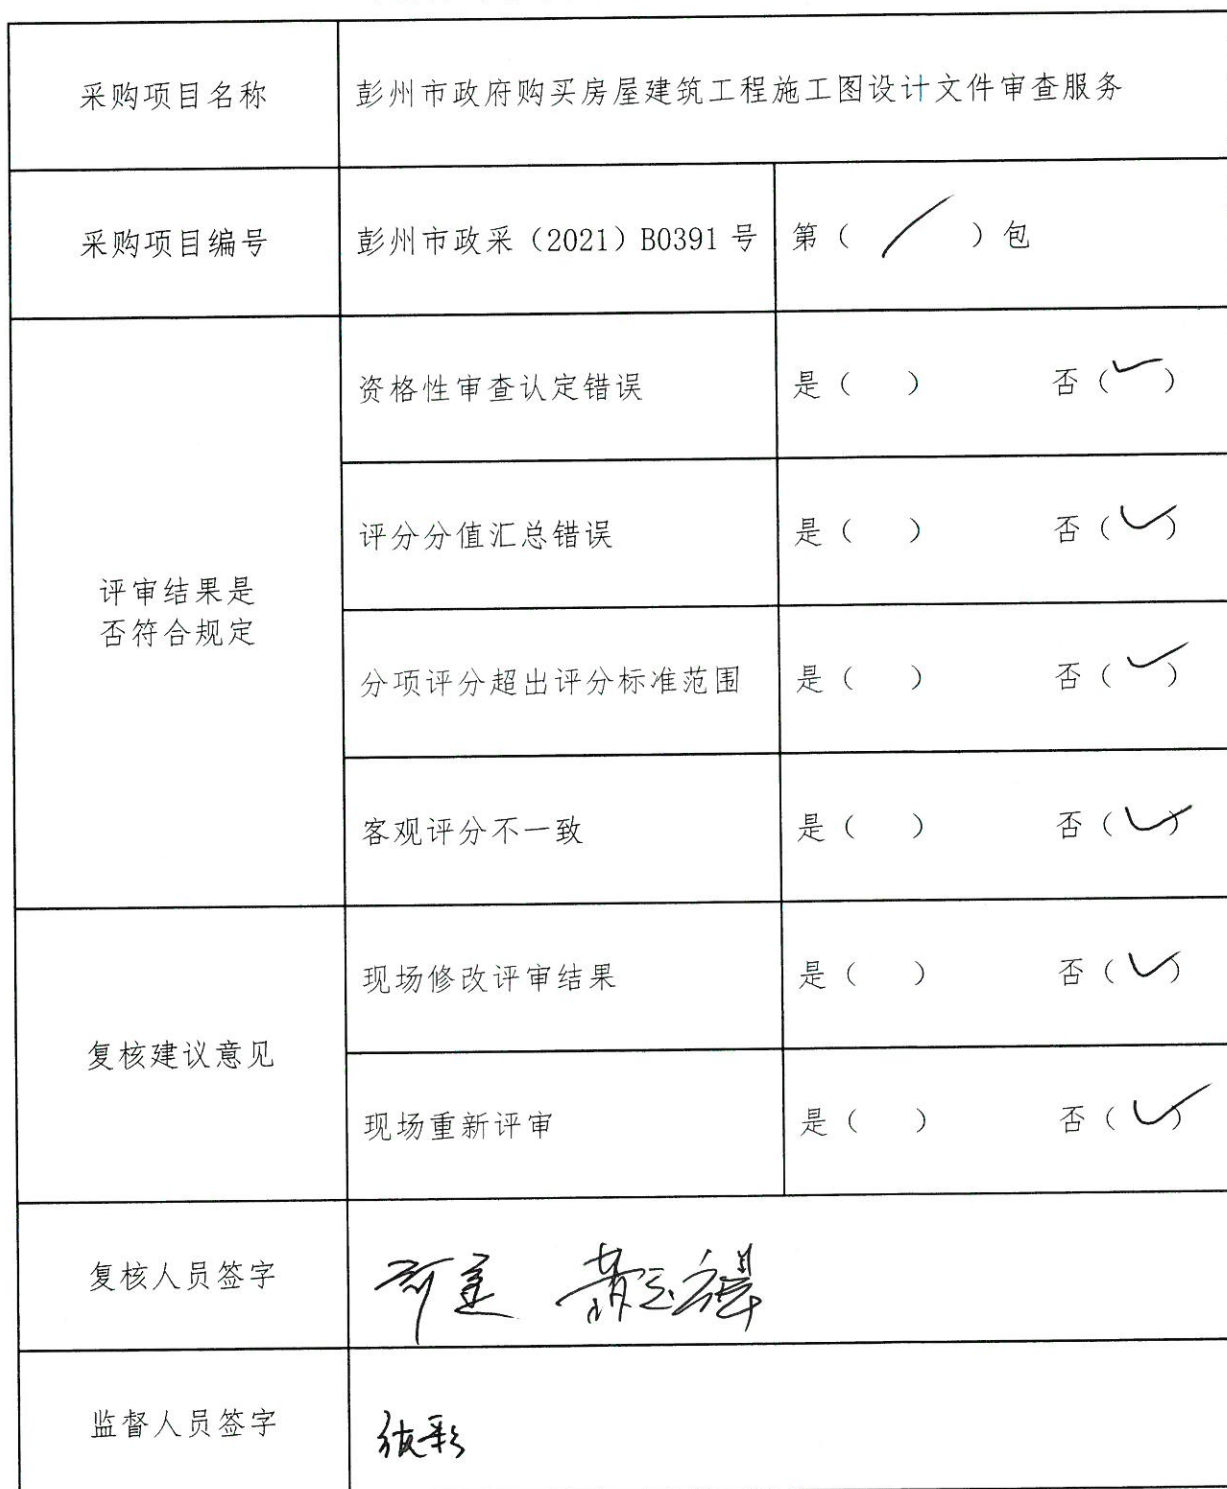 采购项目名称 彭州市政府购买房屋建筑工程施工图设计文件审查服务
采购项目编号 彭州市政采（2021）B0391 号 第（ / ）包
评审结果是
否符合规定
资格性审查认定错误 是（ ） 否（✓）
评分分值汇总错误 是（ ） 否（✓）
分项评分超出评分标准范围 是（ ） 否（✓）
客观评分不一致 是（ ） 否（✓）
复核建议意见
现场修改评审结果 是（ ） 否（✓）
现场重新评审 是（ ） 否（✓）
复核人员签字
监督人员签字